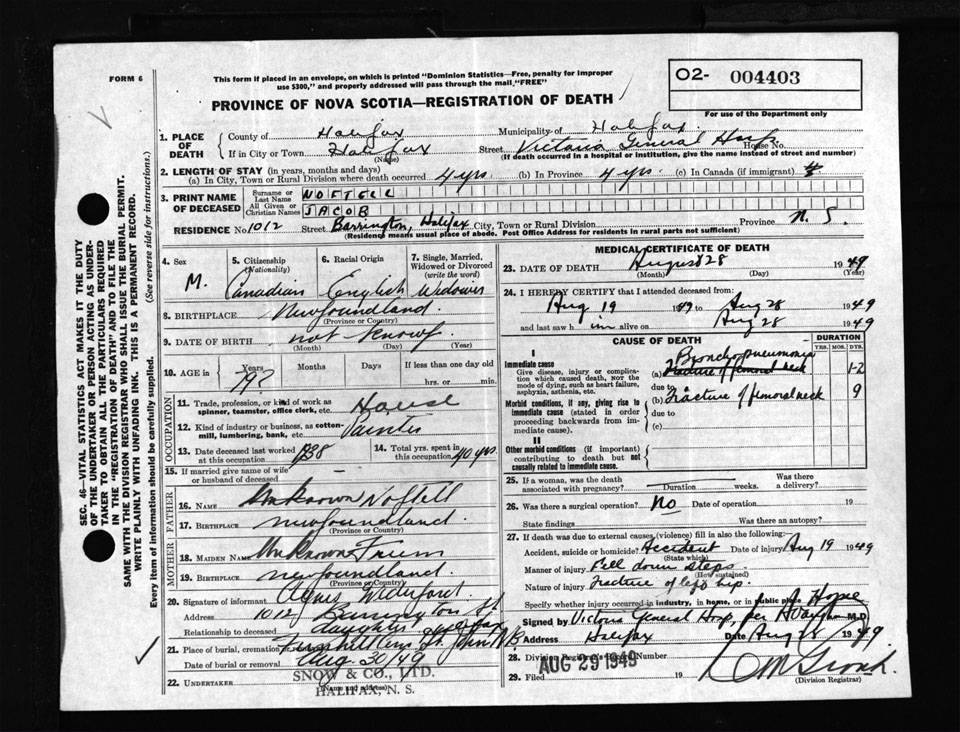 FORM 6
This form if placed in an envelope, on which is printed "Dominion Statistics—Free, penalty for improper
use $300," and properly addressed will pass through the mail, "FREE"
O2- 004403
For use of the Department only
PROVINCE OF NOVA SCOTIA—REGISTRATION OF DEATH
1. PLACE OF DEATH
County of Halifax Municipality of Halifax
If in City or Town Halifax Street Victoria General Hosp House No.
(Name) (If death occurred in a hospital or institution, give the name instead of street and number)
2. LENGTH OF STAY (in years, months and days)
(a) In City, Town or Rural Division where death occurred 4 yrs. (b) In Province 4 yrs. (c) In Canada (if immigrant)
3. PRINT NAME OF DECEASED
Surname or Last Name NOFTELL
All Given or Christian Names JACOB
RESIDENCE No 1012 Street Barrington, Halifax City, Town or Rural Division Province N. S.
(Residence means usual place of abode. Post Office Address for residents in rural parts not sufficient)
4. Sex
M.
5. Citizenship
(Nationality)
Canadian
6. Racial Origin
English
7. Single, Married,
Widowed or Divorced
(write the word)
Widower
8. BIRTHPLACE Newfoundland.
(Province or Country)
9. DATE OF BIRTH not known
(Month) (Day) (Year)
10. AGE in Years Months Days If less than one day
hrs. or min.
OCCUPATION
11. Trade, profession, or kind of work as
spinner, teamster, office clerk, etc. House
12. Kind of industry or business, as cotton-
mill, lumbering, bank, etc. Painter
13. Date deceased last worked
at this occupation 1938
14. Total yrs. spent in
this occupation 40 yrs
15. If married give name of wife
or husband of deceased
FATHER
16. NAME Unknown Noftell
17. BIRTHPLACE Newfoundland.
(Province or Country)
MOTHER
18. MAIDEN NAME Unknown
19. BIRTHPLACE Newfoundland.
(Province or Country)
20. Signature of informant Agnes
Address 1012 Barrington St
Halifax
Relationship to deceased daughter
21. Place of burial, cremation St. John N B
Date of burial or removal Aug 30/49
22. UNDERTAKER SNOW & CO., LTD.
(Name and address)
HALIFAX, N. S.
MEDICAL CERTIFICATE OF DEATH
23. DATE OF DEATH August 28 1949
(Month) (Day) (Year)
24. I HEREBY CERTIFY that I attended deceased from:
Aug 19 1949 to Aug 28 1949
and last saw him alive on Aug 28 1949
CAUSE OF DEATH
DURATION
YRS. MOS. DYS.
I
Immediate cause
Give disease, injury or complica-
tion which caused death, NOT the
mode of dying, such as heart failure,
asphyxia, asthenia, etc.
Bronchopneumonia
(a) Fracture of femoral neck 1-2
due to
(b) Fracture of femoral neck 9
Morbid conditions, if any, giving rise to
immediate cause (stated in order
proceeding backwards from im-
mediate cause).
due to
(c)
II
Other morbid conditions (if important)
contributing to death but not
causally related to immediate cause.
25. If a woman, was the death
associated with pregnancy? Duration weeks. Was there
a delivery?
26. Was there a surgical operation? No Date of operation 19
State findings Was there an autopsy?
27. If death was due to external causes (violence) fill in also the following:
Accident, suicide or homicide? Accident Date of injury Aug 19 1949
(State which)
Manner of injury Fell down steps.
(How sustained)
Nature of injury Fracture of left hip.
Specify whether injury occurred in industry, in home, or in public place Home
Signed by Victoria General Hosp, per M.D
Address Halifax Date Aug 28 1949
28. Division Registrar's Record Number
AUG 29 1949
29. Filed 19
(Division Registrar)
SEC. 46—VITAL STATISTICS ACT MAKES IT THE DUTY
OF THE UNDERTAKER OR PERSON ACTING AS UNDER-
TAKER TO OBTAIN ALL THE PARTICULARS REQUIRED
IN THE "REGISTRATION OF DEATH" AND TO FILE THE
SAME WITH THE DIVISION REGISTRAR WHO SHALL ISSUE THE BURIAL PERMIT.
WRITE PLAINLY WITH UNFADING INK. THIS IS A PERMANENT RECORD.
Every item of information should be carefully supplied. (See reverse side for instructions.)